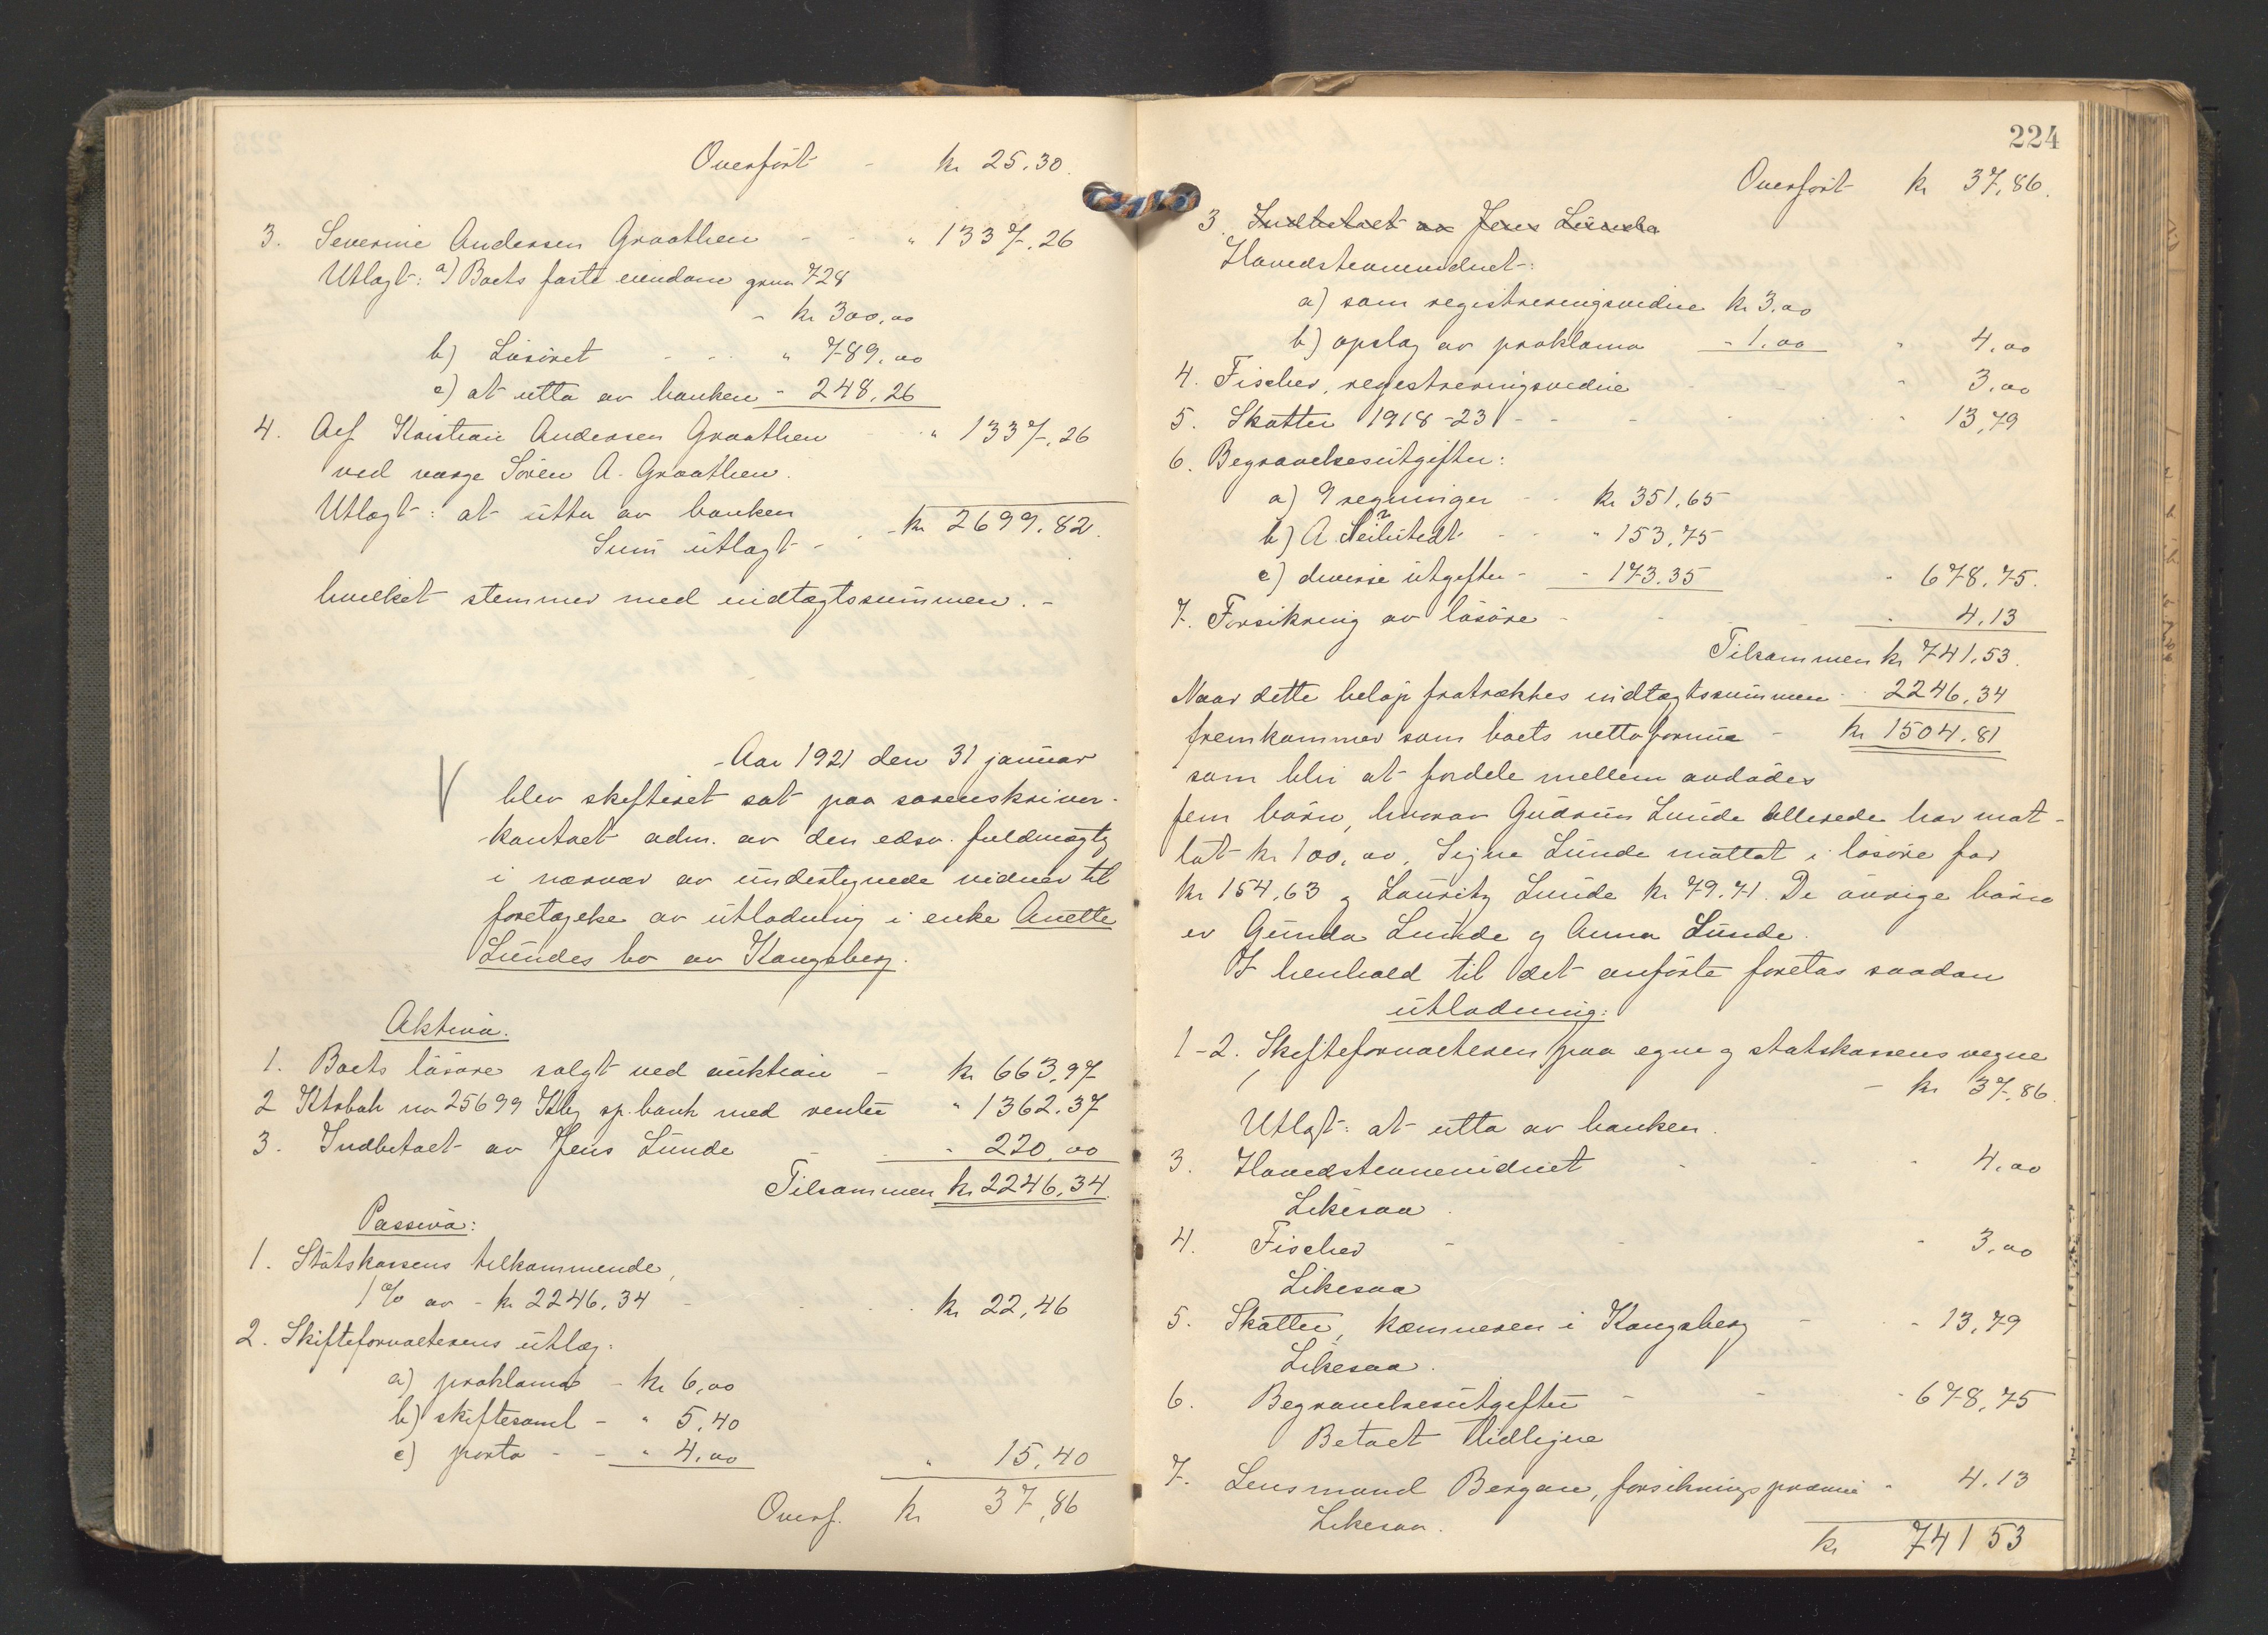 Overført - kr 25.30.
3. Severine Andersen Graathen - - " 1337,26
Utlagt: a) Boets faste eiendom grnr 728
- kr 300,00
b) Løsøret - - - " 789,00
c) at utta av banken - 248,26
4. Arf. Kristian Andersen Graathen - " 1337,26
ved værge Søren A. Graathen.
Utlagt: at utta av banken
Sum utlagt - - kr 2699.82.
hvilket stemmer med indtægtssummen. -
Aar 1921 den 31 januar
blev skifteret sat paa sorenskriver-
kontoret adm. av den edsv. fuldmægtig
i nærvær av undertegnede vidner til
foretagelse av utlodning i enke Anette
Lundes bo av Kongsberg.
Aktiva.
1. Boets løsøre solgt ved auktion - kr 663,97
2 Ktrbok no 25699 Kbg sp.bank med renter " 1362.37
3. Indbetalt av Jens Lunde - - " 220,00
Tilsammen kr 2246,34.
Passiva:
1. Statskassens tilkommende,
1% av - kr 2246,34 - - - kr 22,46
2. Skifteforvalterens utlæg:
a) proklama - kr 6,00
b) skiftesaml - " 5,40
c) porto - - " 4,00 " 15,40
Overf. kr 37,86
224
Overført kr 37,86.
3. Indbetalt av Jens Lunde
Hovedstevnevidnet:
a) som registreringsvidne kr 3,00
b) opslag av proklama - 1,00 " 4,00
4. Fischer, registreringsvidne - - " 3,00
5. Skatter 1918-23 - - - - " 13,79
6. Begravelsesutgifter:
a) 9 regninger - - kr 351,65
b) A. - - " 153,75
c) diverse utgifter - - 173.35 " 678,75.
7. Forsikring av løsøre - - - " 4,13
Tilsammen kr 741,53.
Naar dette beløp fratrækkes indtægtssummen - 2246,34
fremkommer som boets nettoformue - kr 1504,81
som blir at fordele mellem avdødes
fem børn, hvorav Gudrun Lunde allerede har mot-
tat kr 100,00, Signe Lunde mottat i løsøre for
kr 154,63 og Lauritz Lunde kr 79.71. De øvrige børn
er Gunda Lunde og Anna Lunde.
I henhold til det anførte foretas saadan
utlodning:
1-2. Skifteforvalteren paa egne og statskassens vegne
- kr 37,86.
Utlagt: at utta av banken.
3. Hovedstevnevidnet - - - 4,00
Likesaa.
4. Fischer - - - 3,00
Likesaa
5. Skatter, kæmneren i Kongsberg - - 13,79
Likesaa.
6. Begravelsesutgifter - - - 678,75
Betalt tidligere
7. Lensmand Bergan, forsikringspræmie - 4.13
Likesaa.
kr 741 53